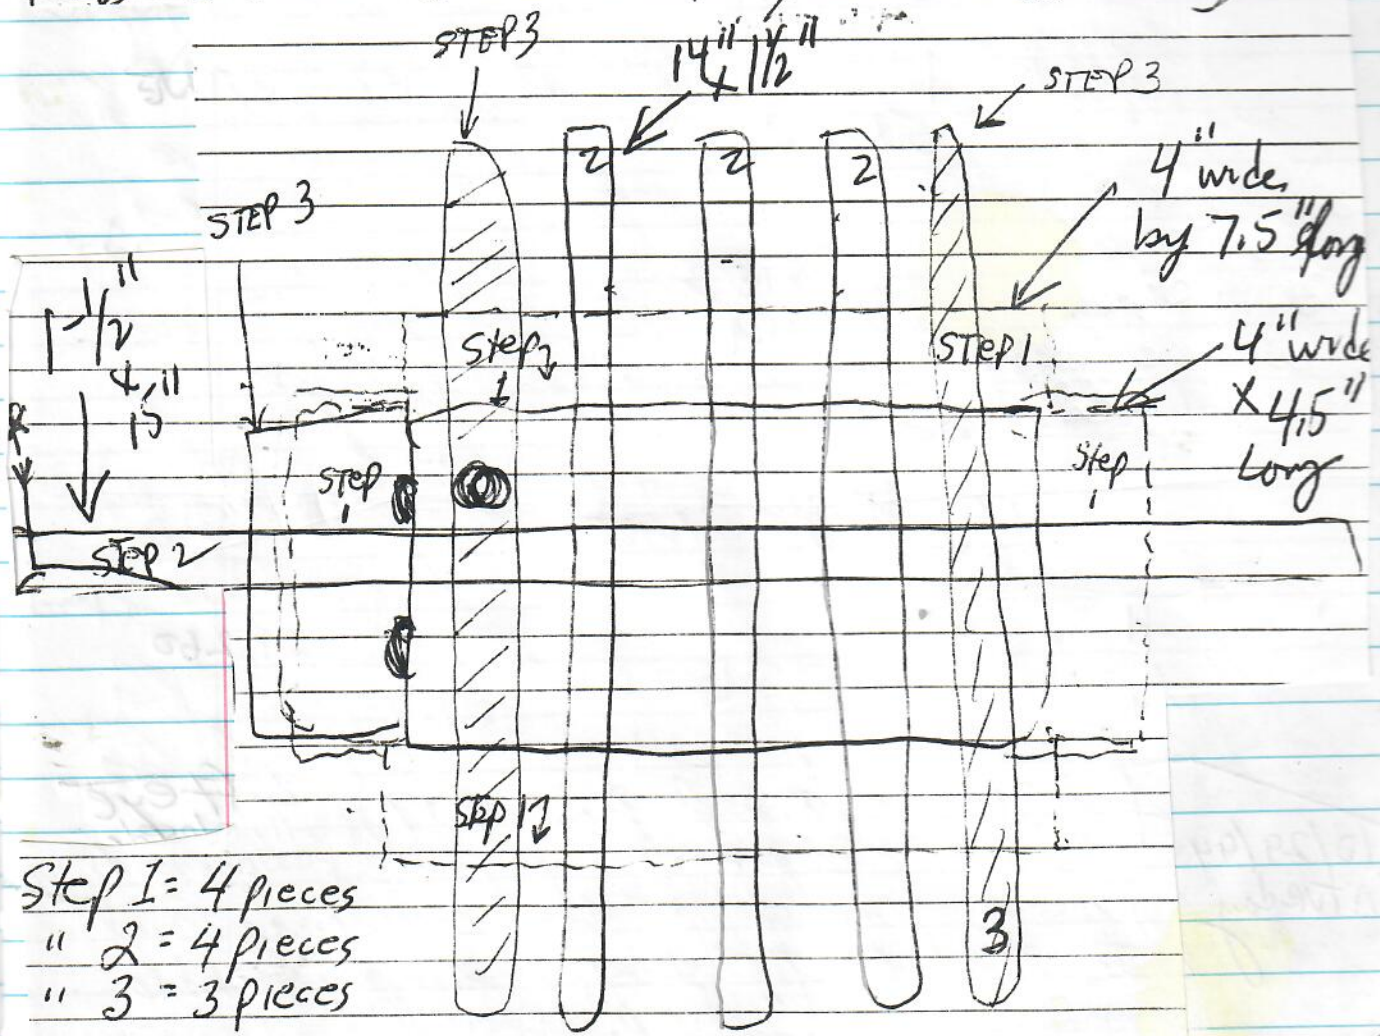 STEP 3
14" x 1 1/2"
STEP 3
2
2
2
4" wide
by 7.5" long
STEP 3
1-1/2"
x 15"
Step
1
STEP 1
4" wide
x 4.5"
Long
Step
1
Step
1
STEP 2
Step 1
3
Step 1 = 4 pieces
" 2 = 4 pieces
" 3 = 3 pieces